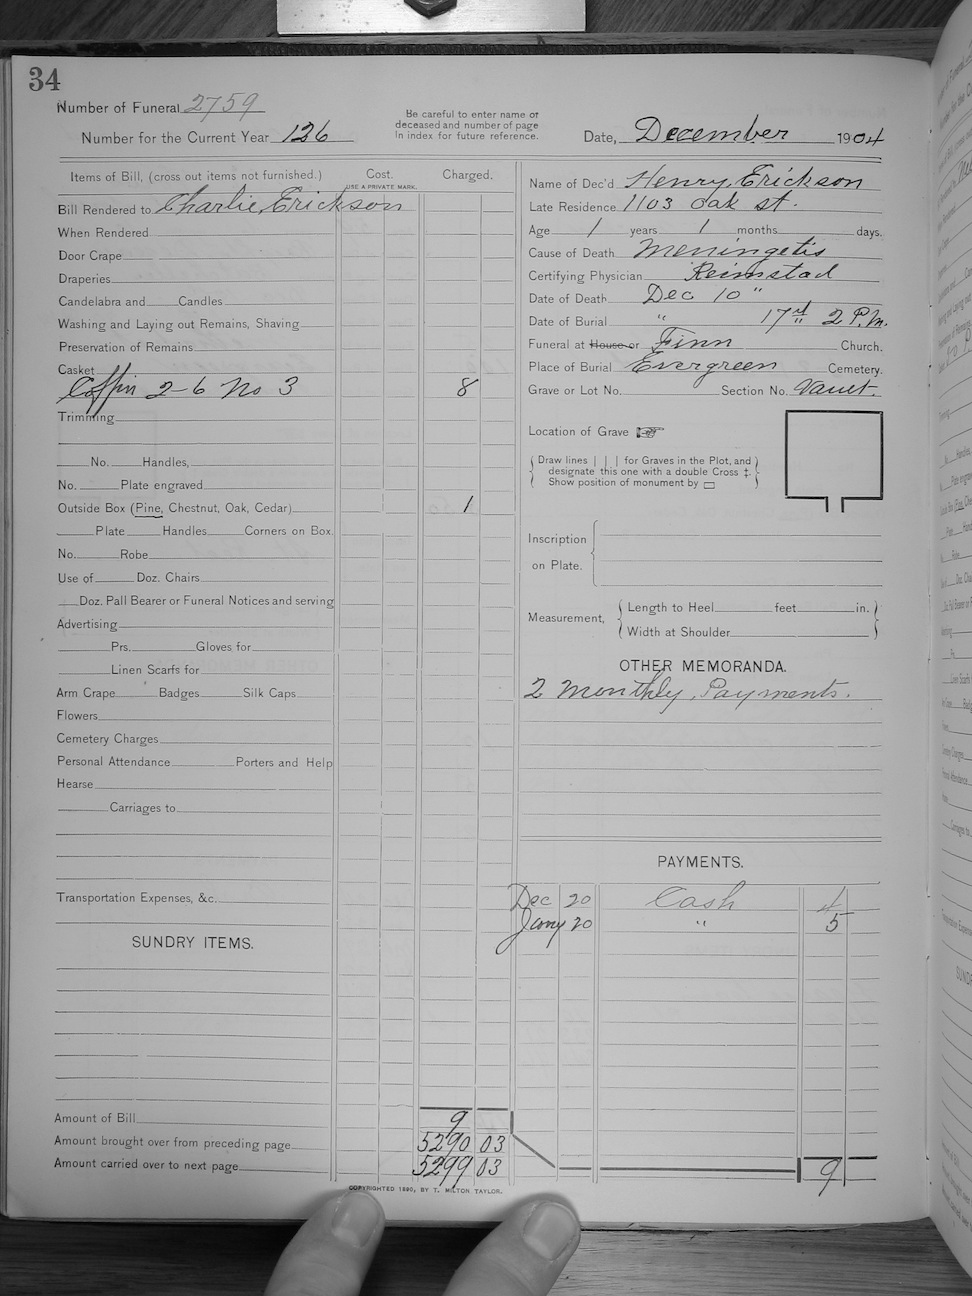 34
Number of Funeral 2759
Number for the Current Year 126
Be careful to enter name of
deceased and number of page
in index for future reference.
Date, December 1904
Items of Bill, (cross out items not furnished.) Cost. Charged.
USE A PRIVATE MARK.
Bill Rendered to Charlie Erickson
When Rendered
Door Crape
Draperies
Candelabra and Candles
Washing and Laying out Remains, Shaving
Preservation of Remains
Casket
Coffin 2-6 No 3 8
Trimming
No. Handles,
No. Plate engraved
Outside Box (Pine, Chestnut, Oak, Cedar) 1
Plate Handles Corners on Box.
No. Robe
Use of Doz. Chairs
Doz. Pall Bearer or Funeral Notices and serving
Advertising
Prs. Gloves for
Linen Scarfs for
Arm Crape Badges Silk Caps
Flowers
Cemetery Charges
Personal Attendance Porters and Help
Hearse
Carriages to
Transportation Expenses, &c.
SUNDRY ITEMS.
Amount of Bill 9
Amount brought over from preceding page 5290 03
Amount carried over to next page 5299 03
COPYRIGHTED 1890, BY T. MILTON TAYLOR.
Name of Dec'd Henry Erickson
Late Residence 1103 Oak st.
Age 1 years 1 months days.
Cause of Death Meningetis
Certifying Physician Reimstad
Date of Death Dec 10 "
Date of Burial " 17 2 P.M.
Funeral at House or Finn Church.
Place of Burial Evergreen Cemetery.
Grave or Lot No. Section No. Vault.
Location of Grave ☞
Draw lines | | | for Graves in the Plot, and
designate this one with a double Cross ‡.
Show position of monument by ▭
Inscription
on Plate.
Measurement, Length to Heel feet in.
Width at Shoulder
OTHER MEMORANDA.
2 Monthly Payments.
PAYMENTS.
Dec 20 Cash 4
Jany 20 " 5
9